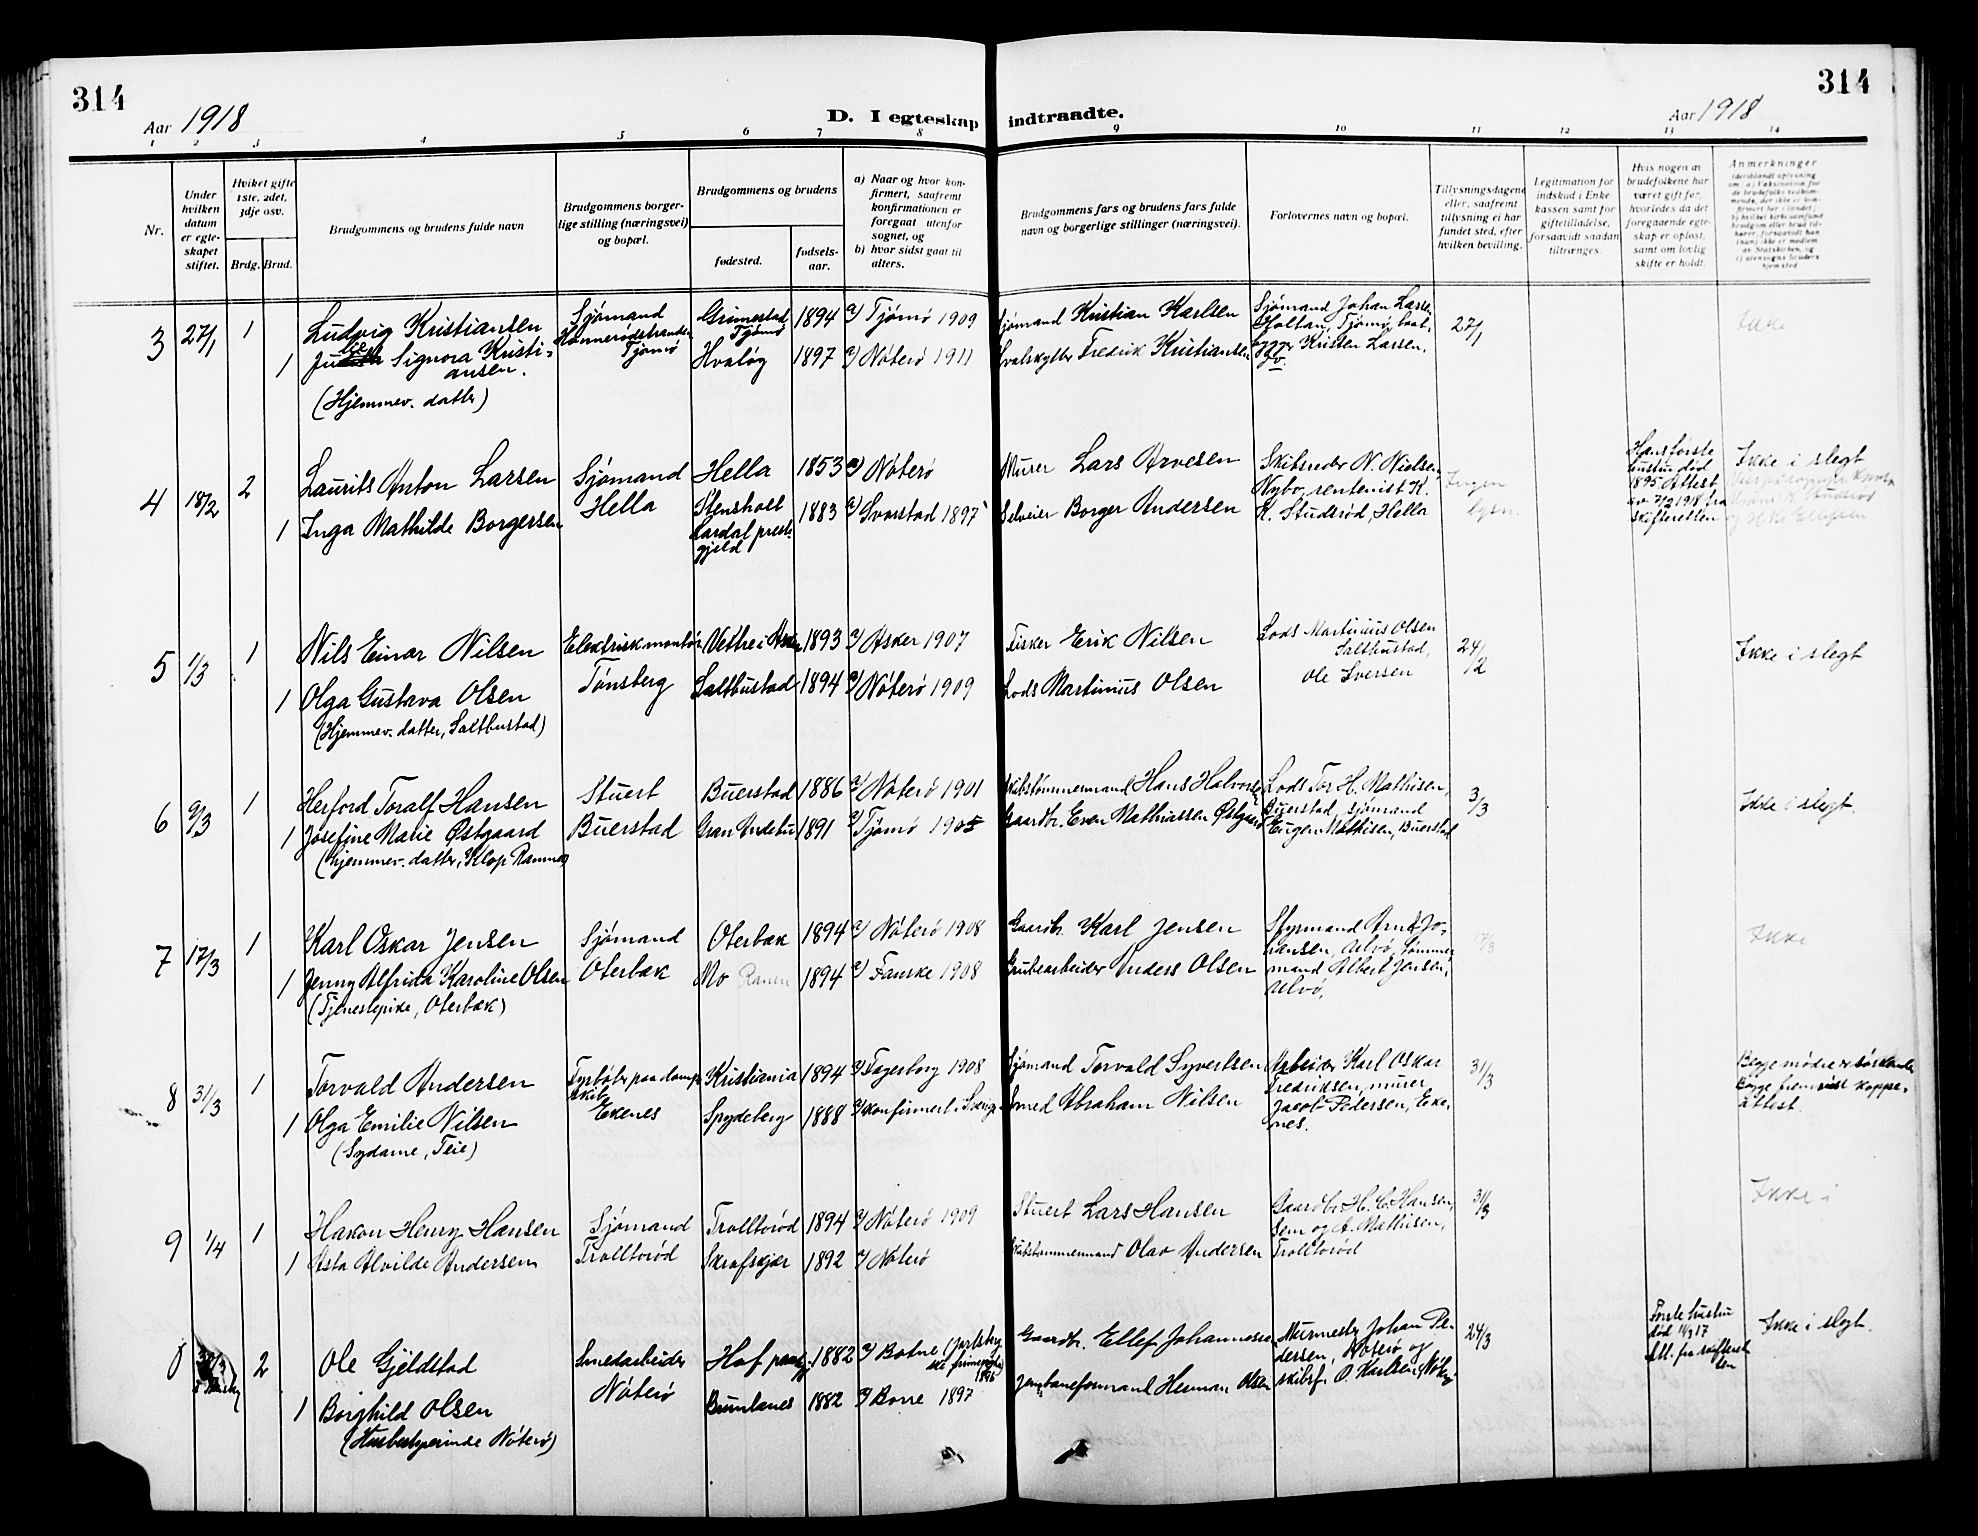 314
Aar 1918
D. I egteskap indtraadte.
Aar 1918
314
1 2 3 4 5 6 7 8 9 10 11 12 13 14
Nr.
Under hvilken datum er egteskapet stiftet.
Hvilket gifte 1ste, 2det, 3dje osv.
Brdg. Brud.
Brudgommens og brudens fulde navn
Brudgommens borgerlige stilling (næringsvei) og bopæl.
Brudgommens og brudens
fødested.
fødselsaar.
a) Naar og hvor konfirmert, saafremt konfirmationen er foregaat utenfor sognet, og
b) hvor sidst gaat til alters.
Brudgommens fars og brudens fars fulde navn og borgerlige stillinger (næringsvei).
Forlovernes navn og bopæl.
Tillysningsdagene eller, saafremt tillysning ei har fundet sted, efter hvilken bevilling.
Legitimation for indskud i Enkekassen samt for giftetilladelse, forsaavidt saadan tiltrænges.
Hvis nogen av brudefolkene har været gift før, hvorledes da det foregaaende egteskap er opløst, samt om lovlig skifte er holdt.
Anmerkninger
3 27/1 1 Ludvig Kristiansen
Sjømand
Tjømø
Grimestad Tjømø
1894 a) Tjømø 1909
Sjømand Kristian Karlsen
Sjømand Johan Larsen
Holtan, Tjømø,
Kristen Larsen,
27/1
Ikke
1 Signora Kristiansen.
(Hjemmev. datter)
Hvaløy 1897 a) Nøterø 1911
Hvalskytter Fredrik Kristiansen
4 18/2 2 Laurits Anton Larsen
Sjømand
Hella
Hella 1853 a) Nøterø
Murer Lars Arvesen
Skibsreder N. Nielsen
Nybø, rentenist K.
K. Studsrød, Hella
Ingen lysn.
Hans første
hustru død
1895 Attest
av 7/2 1918 fra
skifteretten
Ikke i slegt
1 Inga Mathilde Borgersen
Stensholt
Lardal prestegjeld
1883 a) Svarstad 1897
Selveier Borger Andersen
5 1/3 1 Nils Einar Nilsen
Elektriskmontør
Tønsberg
Vettre i Asker 1893 a) Asker 1907
Fisker Erik Nilsen
Lods Martinius Olsen
Saltbustad,
Ole Iversen
24/2
Ikke i slegt
1 Olga Gustava Olsen
(Hjemmev. datter, Saltbustad)
Saltbustad 1894 a) Nøterø 1909
Lods Martinius Olsen
6 9/3 1 Herford Toralf Hansen
Stuert
Buerstad
Buerstad 1886 a) Nøterø 1901
Skibstømmermand Hans Halvorsen
Lods Tor H. Mathisen,
Buerstad, sjømand
Eugen Mathisen, Buerstad
3/3
Ikke i slegt.
1 Josefine Marie Østgaard
(hjemmev. datter, Klop Ramnes)
Gran Andebu 1891 a) Tjømø 1905
Gaardbr. Even Mathiassen Østgaard
7 17/3 1 Karl Oskar Jensen
Sjømand
Oterbæk
Oterbæk 1894 a) Nøterø 1908
Gaardbr. Karl Jensen
Styrmand Arnt Johansen,
Ulvø, Tømmermand
Albert Jensen,
Ulvø,
17/3
Ikke
1 Jenny Alfrida Karoline Olsen
(Tjenestepike, Oterbæk)
Mo Ranen 1894 a) Fauske 1908
Grubearbeider Anders Olsen
8 31/3 1 Torvald Andersen
Fyrbøter paa dampskib
Ekenes
Kristiania 1894 a) Fagerborg 1908
Sjømand Torvald Syvertsen
Arbeider Karl Oskar
Fredriksen, murer
Jacob Pedersen, Ekenes.
31/3
Begge mødre er søskende
Begge fremvist koppeattest.
1 Olga Emilie Nilsen
(Sydame, Teie)
Spydeberg 1888 a) konfirmert i Sverige
Smed Abraham Nilsen
9 1/4 1 Hakon Henry Hansen
Sjømand
Trolltorød
Trolltorød 1894 a) Nøterø 1909
Stuert Lars Hansen
Gaardbr. H. C. Hansen,
Sem og A. Mathisen,
Trolltorød
31/3
Ikke i
1 Asta Alvilde Andersen
Skrafskjær 1892 a) Nøterø
Skibstømmermand Olav Andersen
2 Ole Gjeldstad
Smedarbeider
Nøterø
Hof prestgj. 1882 a) Botne
Gaardbr. Ellef Johannessen
Murmester Johan Pedersen,
Nøterø og
skibsf. O. Karlsen, Nøterø
24/3
Første hustru
død 11/3 17
Att. fra skifteretten
Ikke i slegt.
1 Borghild Olsen
(Husbestyrerinde Nøterø)
1882 a) Borre 1897
Jernbaneformand Herman Olsen